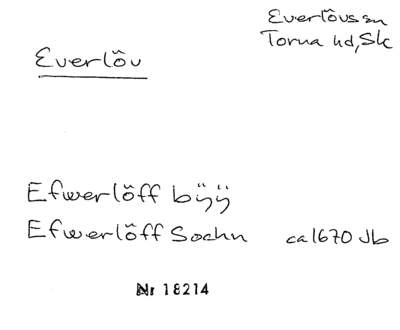 Everlöv
Everlövs sn
Torna hd, Sk
Efwerlöff bÿÿ
Efwerlöff Sochn ca 1670 Jb
Nr 18214